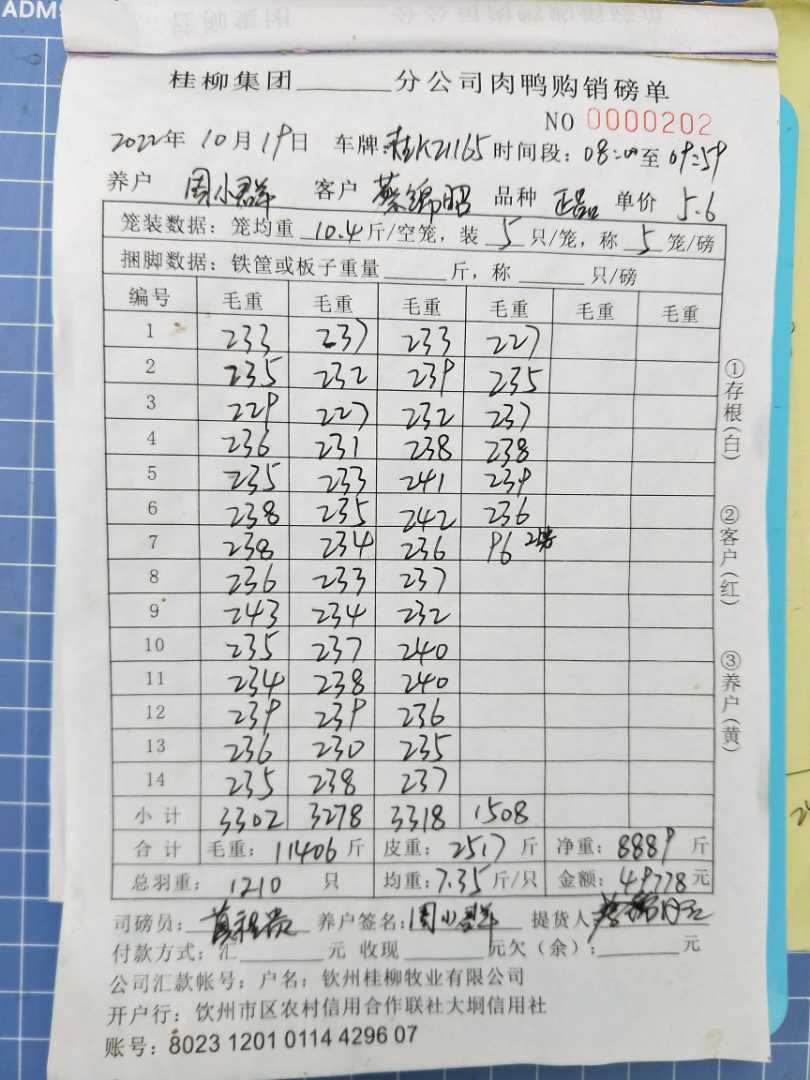 ADM
桂柳集团______分公司肉鸭购销磅单
NO 0000202
2022年 10月 19日 车牌:桂K21165 时间段:08:00至09:59
养户 周小群 客户 蔡锦昭 品种 正品 单价 5.6
笼装数据:笼均重 10.4斤/空笼,装 5 只/笼,称 5 笼/磅
捆脚数据:铁筐或板子重量______斤,称______只/磅
编号 毛重 毛重 毛重 毛重 毛重 毛重
1 233 237 233 227
2 235 232 239 235
3 229 227 232 237
4 236 231 238 238
5 235 233 241 239
6 238 235 242 236
7 238 234 236 96
8 236 233 237
9 243 234 232
10 235 237 240
11 234 238 240
12 239 239 236
13 236 230 235
14 235 238 237
小计 3302 3278 3318 1508
合计 毛重:11406斤 皮重:2517斤 净重:8889斤
总羽重:1210 只 均重:7.35斤/只 金额:49778元
司磅员: 养户签名:周小群 提货人:
付款方式:汇______元 收现______元欠(余):______元
公司汇款帐号:户名:钦州桂柳牧业有限公司
开户行:钦州市区农村信用合作联社大垌信用社
账号:8023 1201 0114 4296 07
①存根(白)
②客户(红)
③养户(黄)